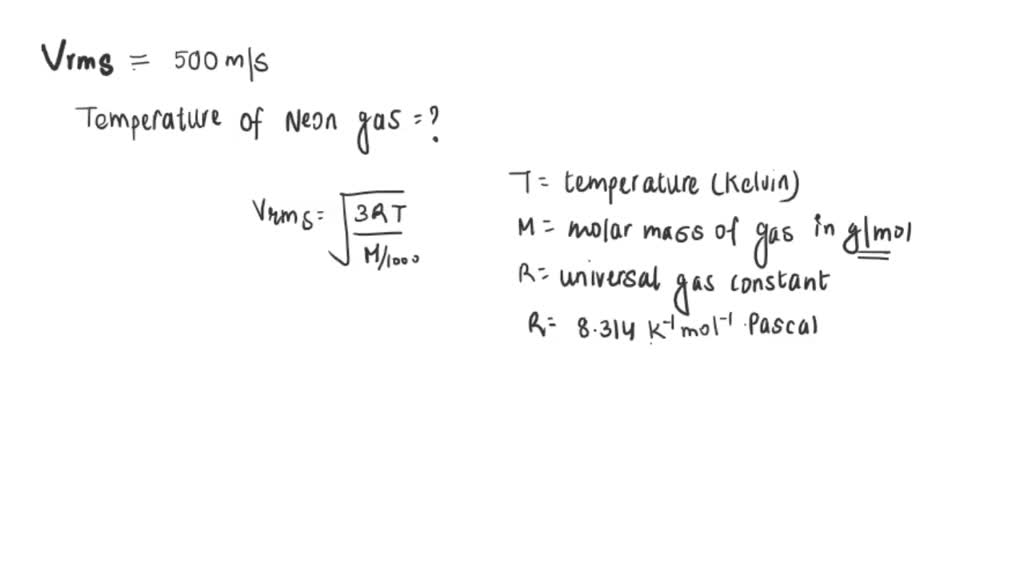 Vrms = 500 m/s
Temperature of Neon gas = ?
Vrms = √3RT / M/1000
T = temperature (Kelvin)
M = molar mass of gas in g/mol
R = universal gas constant
R = 8.314 K⁻¹ mol⁻¹ Pascal